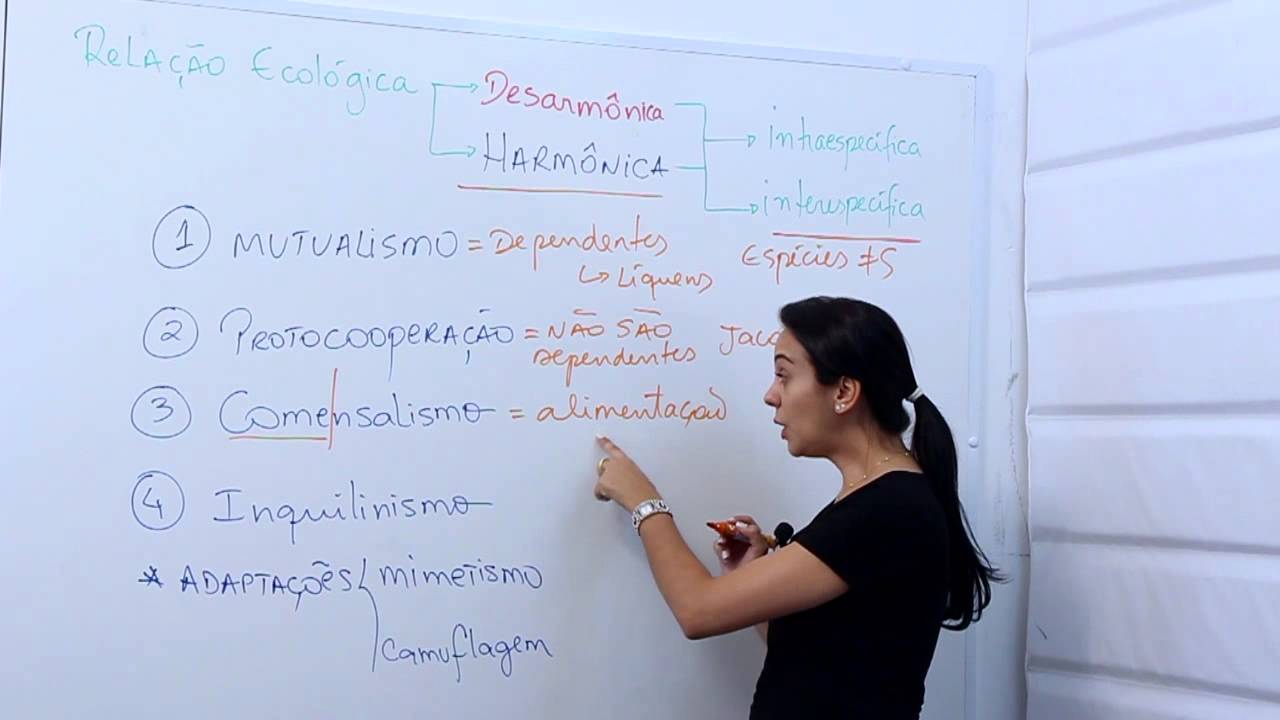 Relação Ecológica
Desarmônica
Harmônica
intraespecífica
interespecífica
Espécies ≠s
1 Mutualismo = Dependentes
↳ Líquens
2 Protocooperação = não são
dependentes
3 Comensalismo = alimentação
4 Inquilinismo
* Adaptações
mimetismo
camuflagem